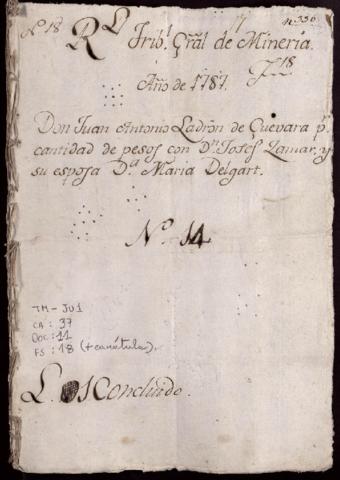 Nº 18
n. 336
R.L Trib.l Gral de Minería.
J.18
Año de 1787.
Don Juan Antonio Ladrón de Guevara p.r
cantidad de pesos con D.n Josef Zamar, y
su esposa D.a Maria Delgart.
Nº 14
TM-JU1
CA: 37
Doc: 11
FS: 18 (+ carátula).
L. Concluido.